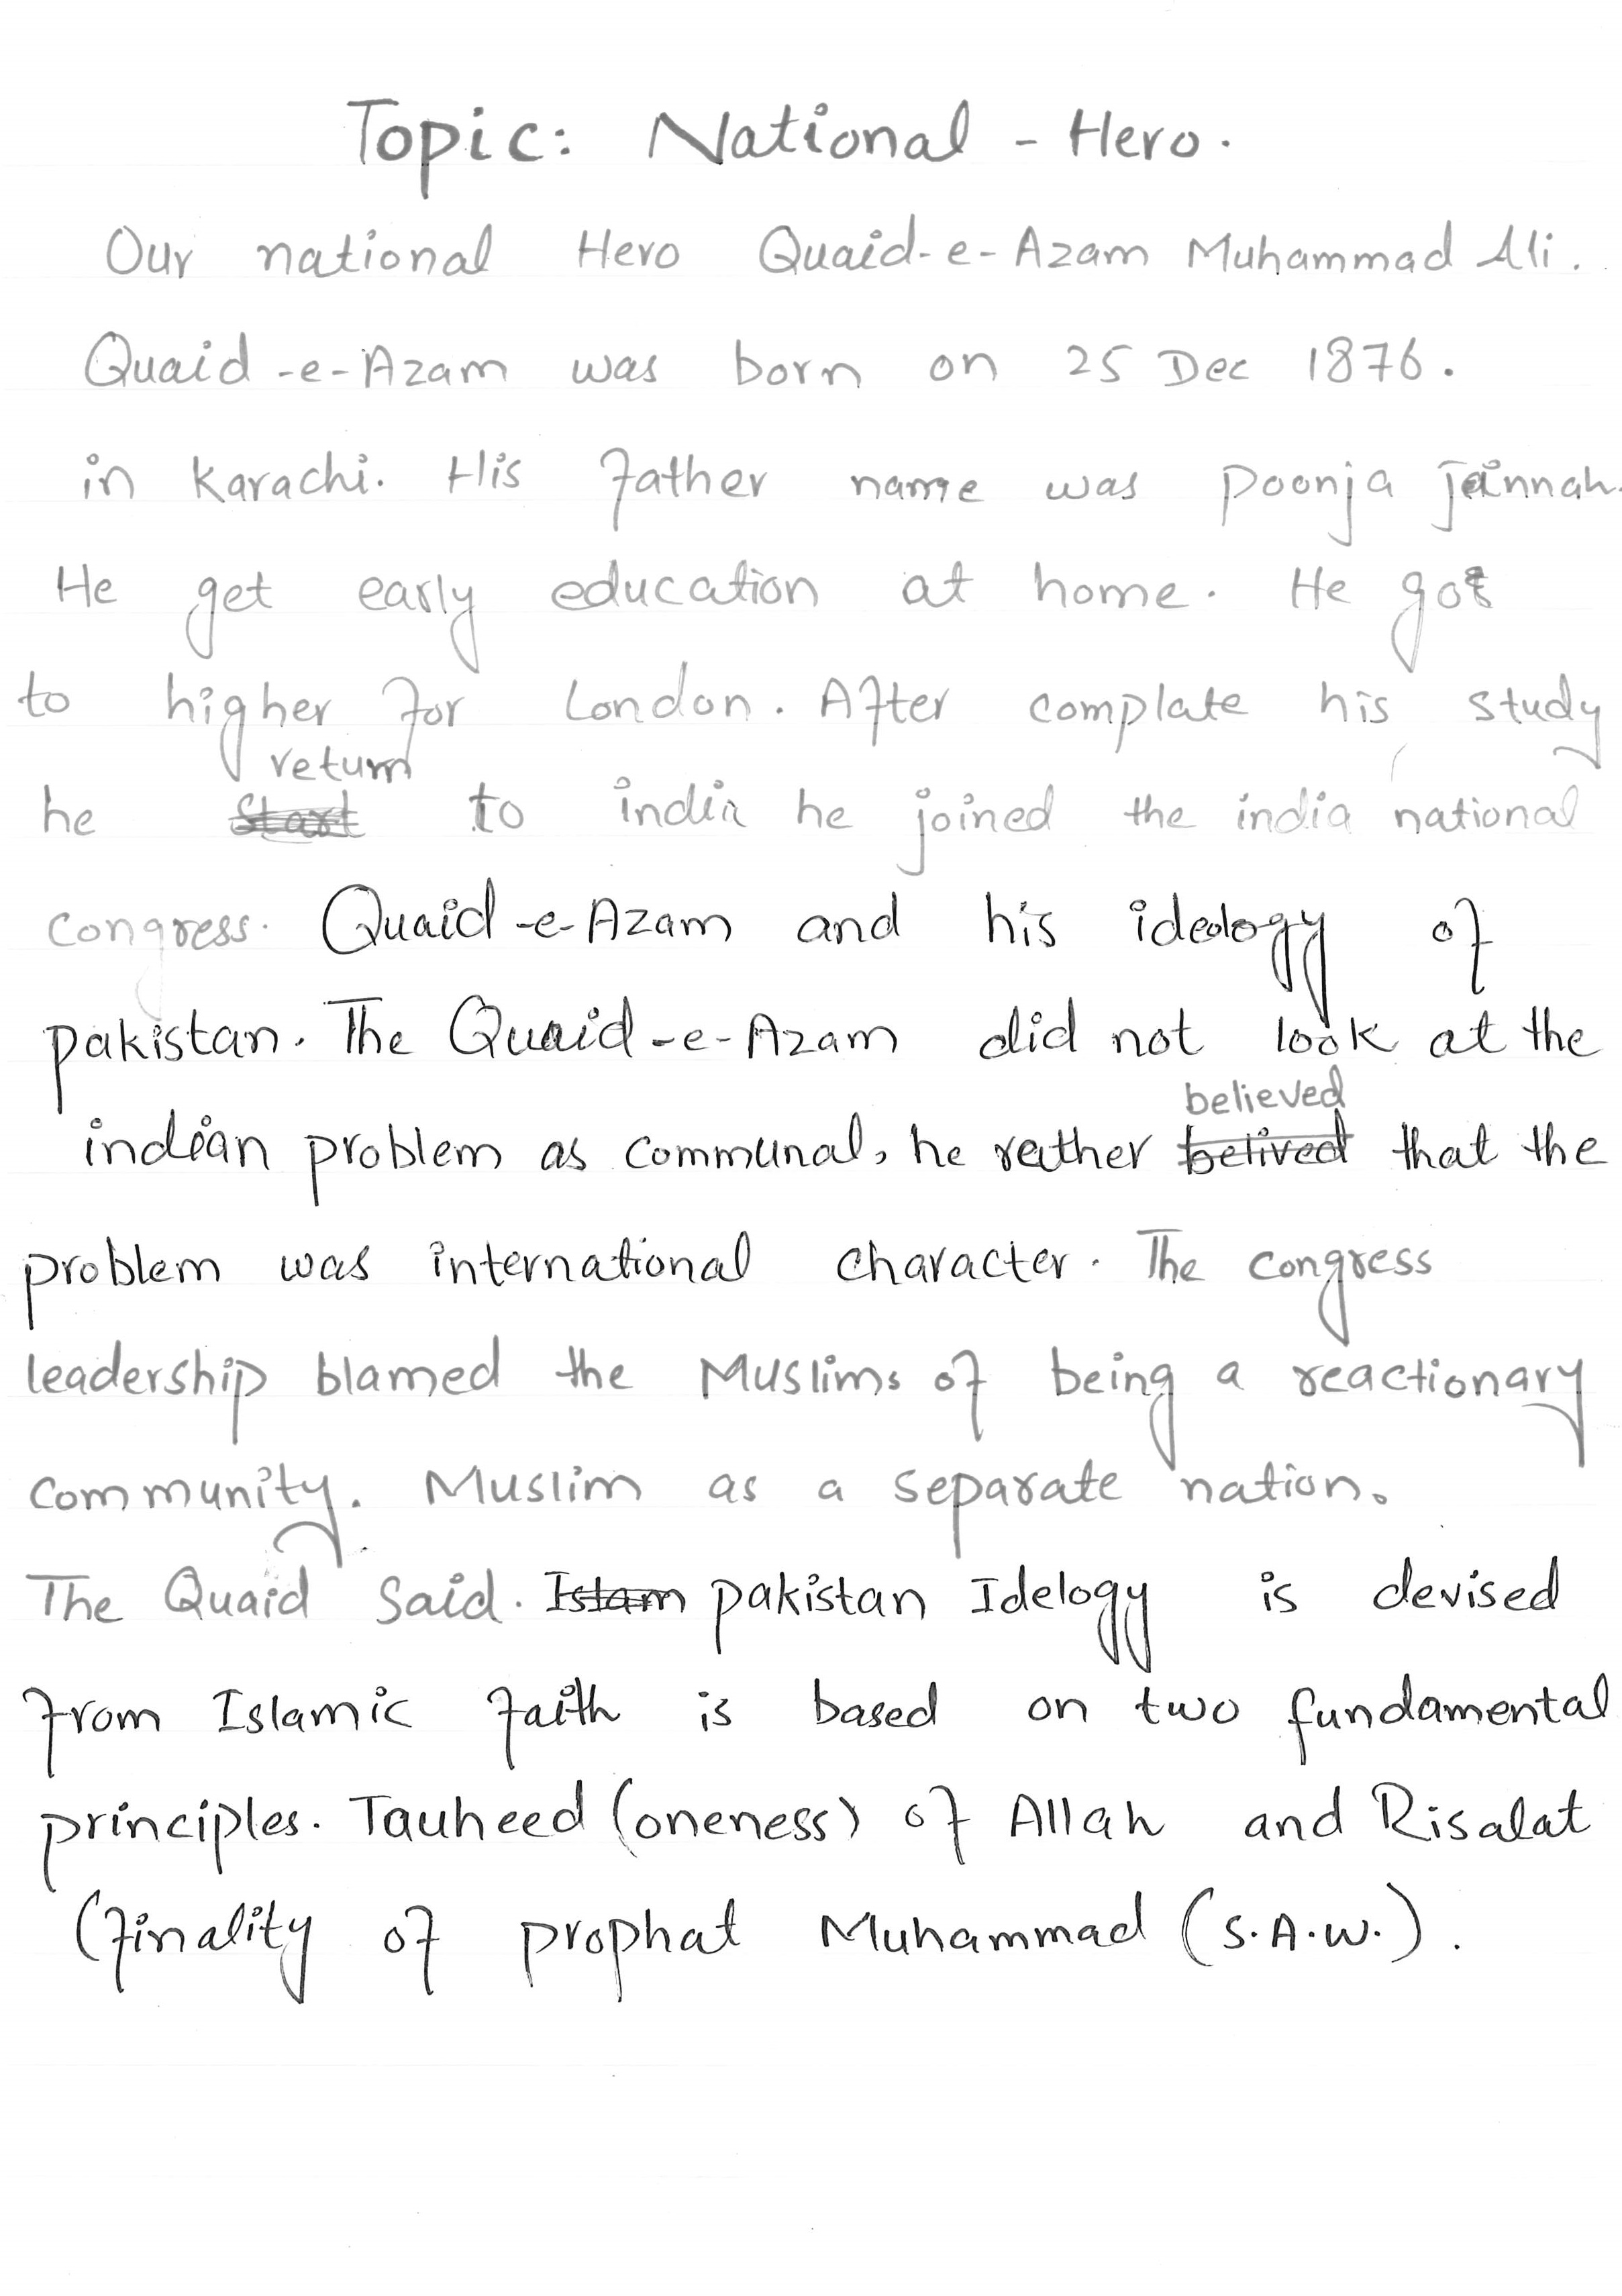 Topic: National - Hero.
Our national Hero Quaid-e-Azam Muhammad Ali.
Quaid-e-Azam was born on 25 Dec 1876.
in Karachi. His father name was poonja Jinnah.
He get early education at home. He got
to higher for London. After complate his study
he return to india he joined the india national
congress. Quaid-e-Azam and his ideology of
pakistan. The Quaid-e-Azam did not look at the
indian problem as communal, he rather believed that the
problem was international character. The congress
leadership blamed the Muslims of being a reactionary
community. Muslim as a separate nation.
The Quaid Said. Islam pakistan Idelogy is devised
from Islamic faith is based on two fundamental
principles. Tauheed (oneness) of Allah and Risalat
(finality of prophat Muhammad (S.A.W.).